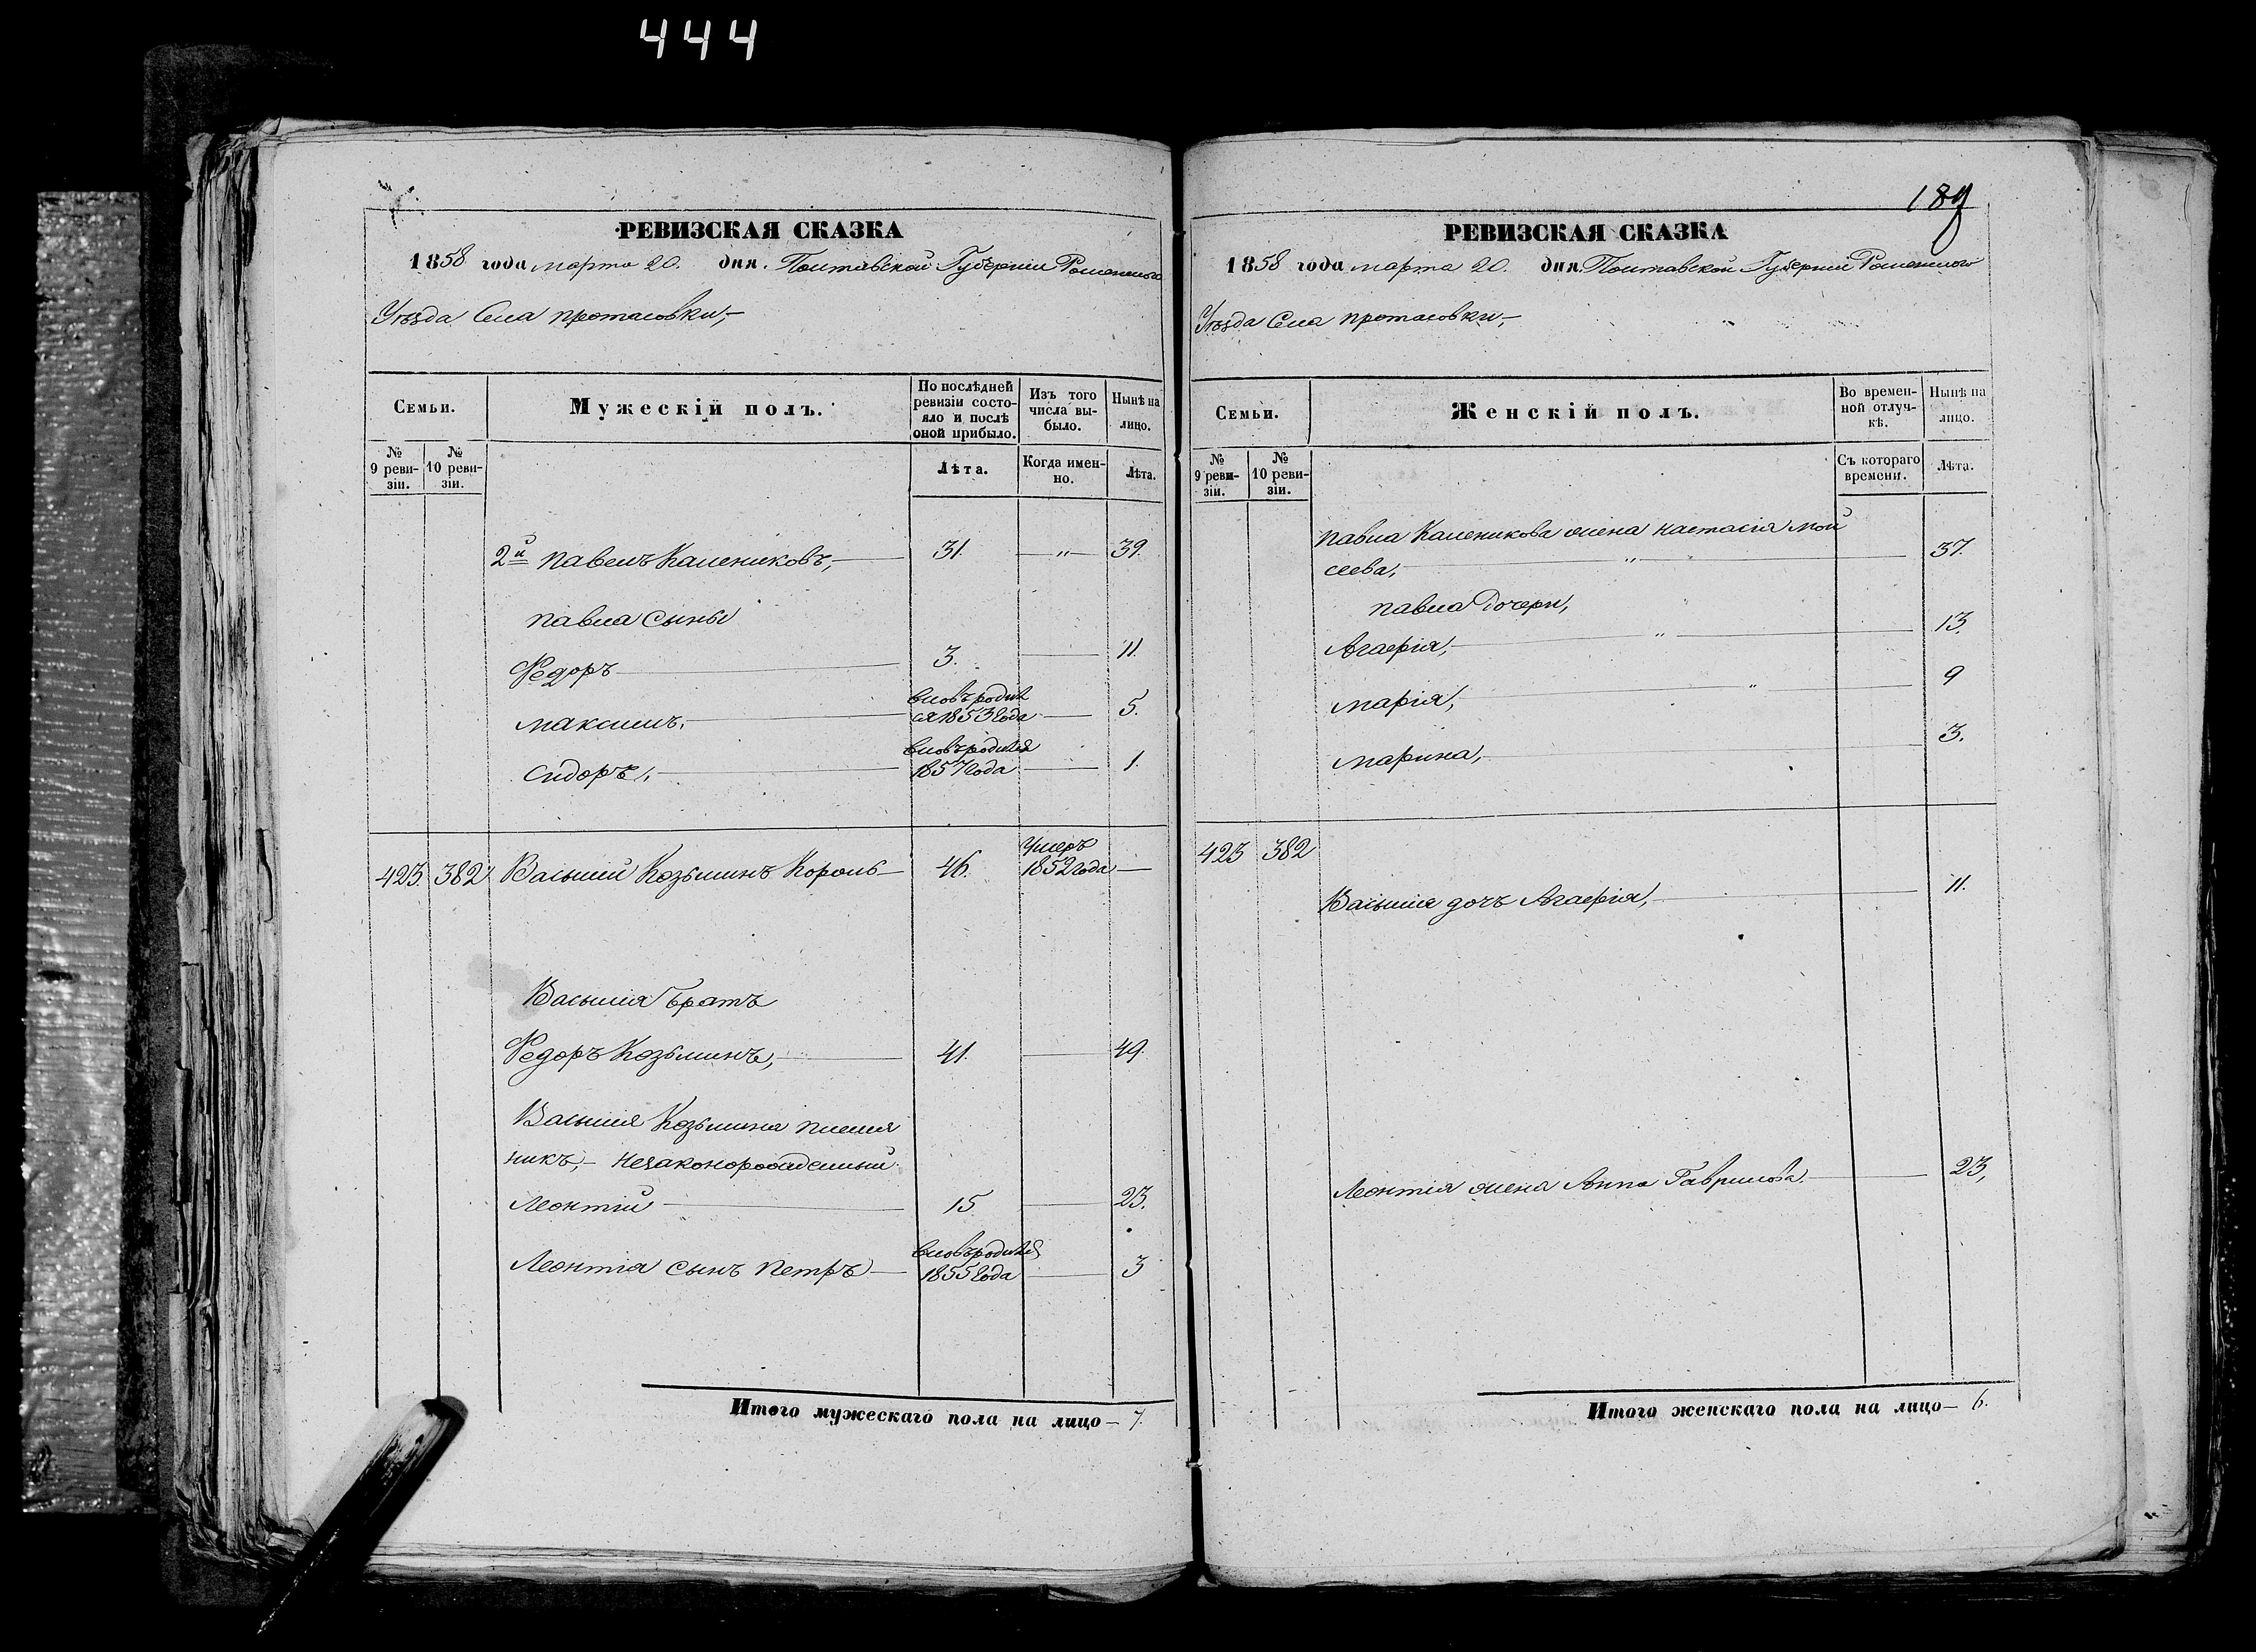 444
РЕВИЗСКАЯ СКАЗКА
1858 года марта 20. дня. Полтавской Губерніи Роменского
Уѣзда Села протасовки,
Семьи.
Мужескій полъ.
По послѣдней
ревизіи состо-
яло и послѣ
оной прибыло.
Изъ того
числа вы-
было.
Нынѣ на
лицо.
№
9 реви-
зіи.
№
10 реви-
зіи.
Лѣта.
Когда имен-
но.
Лѣта.
2й павелъ Калениковъ, 31. " 39.
павла сыны
Федоръ 3. 11.
вновь родил
максимъ. ся 1853 года 5.
вновь родился
сидоръ, 1857 года 1.
умеръ
423. 382 Василий Козьминъ Король 46. 1852 года
Василия братъ
Федоръ Козьминъ, 41. 49.
Василия Козьмина племя
никъ, незаконорожденный
Леонтий 15 23.
вновь родился
Леонтия сынъ петръ 1855 года 3
Итого мужескаго пола на лицо 7.
189
РЕВИЗСКАЯ СКАЗКА
1858 года марта 20. дня. Полтавской Губерніи Роменского
Уѣзда Села протасовки,
Семьи.
Женскій полъ.
Во времен-
ной отлуч-
кѣ.
Нынѣ на
лицо.
№
9 реви-
зіи.
№
10 реви-
зіи.
Съ котораго
времени.
Лѣта.
павла Каленикова жена настасія мой
сеева, " 37.
павла дочери,
Агафія, " 13.
марія, " 9
марина, 3.
423 382
Василия дочь Агафія, 11.
Леонтия жена Анна Гаврилова. 23,
Итого женскаго пола на лицо 6.